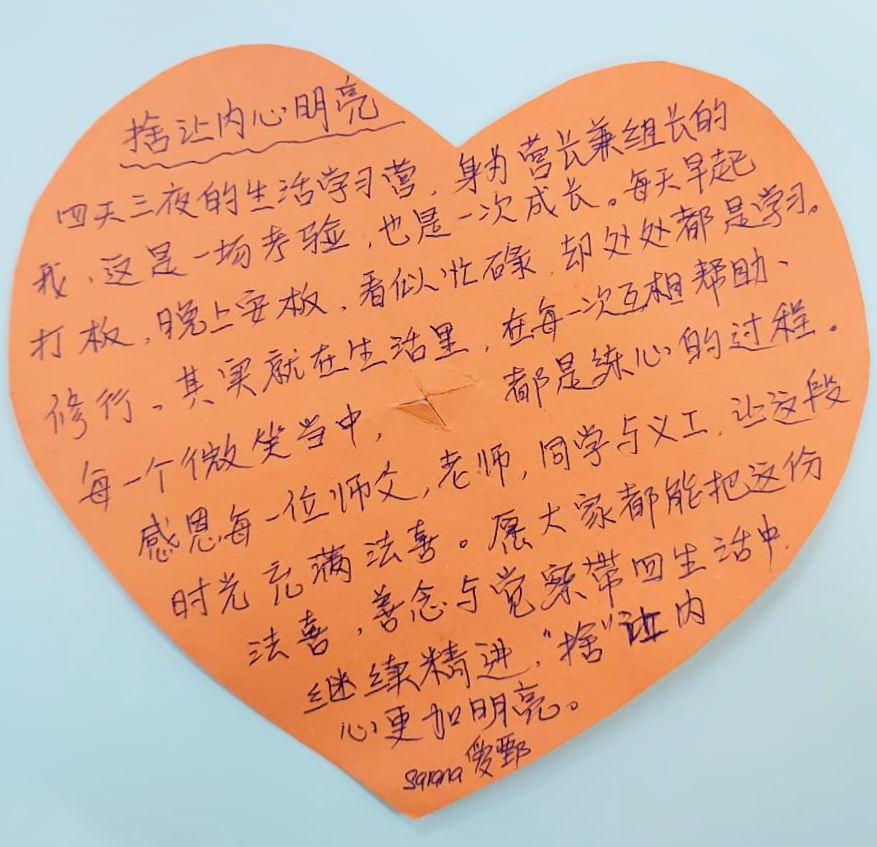 捨让内心明亮
四天三夜的生活学习营，身为营长兼组长的
我、这是一场考验，也是一次成长。每天早起
打板，晚上安板、看似忙碌，却处处都是学习。
修行、其实就在生活里，在每一次互相帮助、
每一个微笑当中，都是练心的过程。
感恩每一位师父，老师，同学与义工，让这段
时光充满法喜。愿大家都能把这份
法喜，善念与觉察带回生活中，
继续精进，“捨”让内
心更加明亮。
Sarana 爱甄